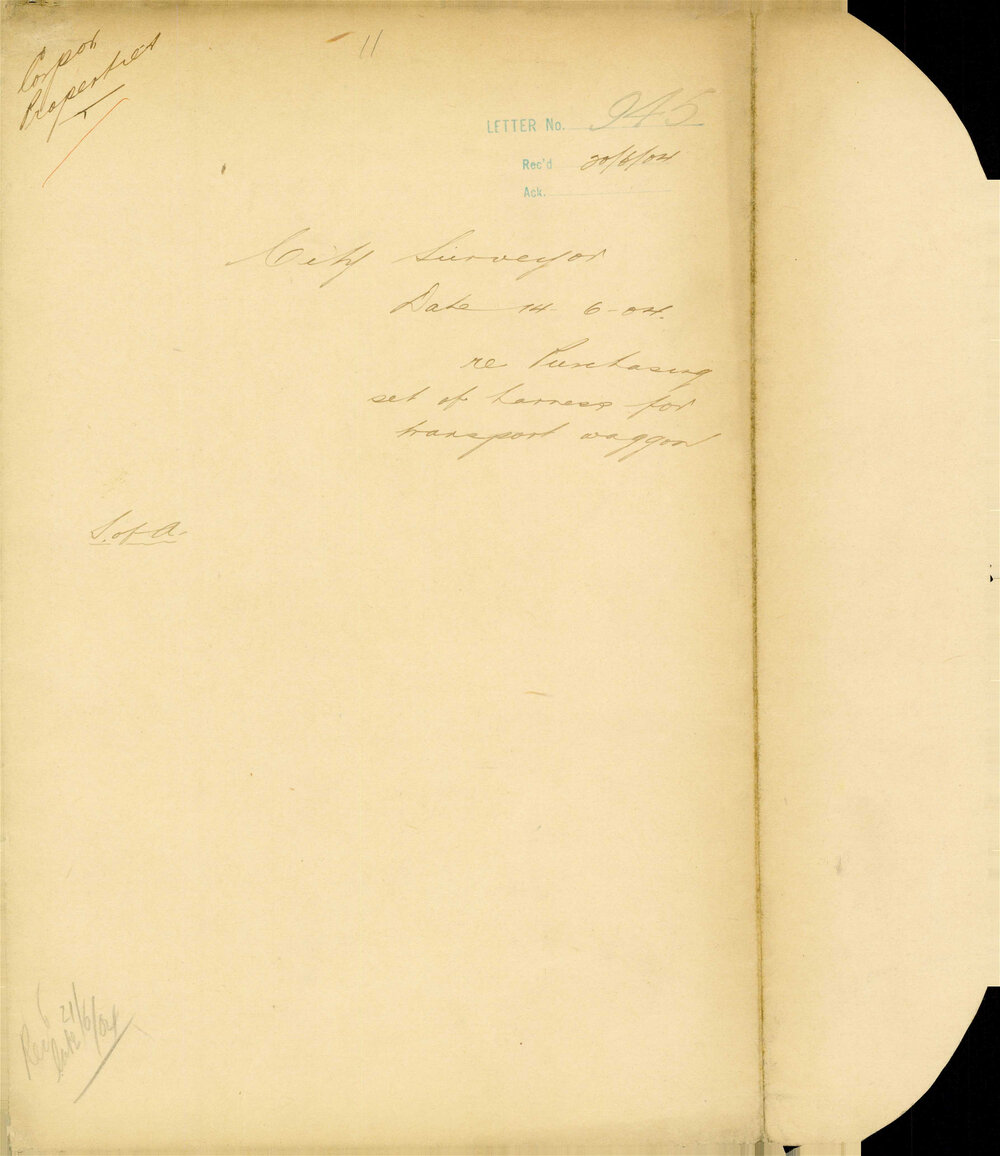 Corpor
Properties
11
LETTER No. 945
Rec'd 20/6/04
Ack.
City Surveyor
Date 14-6-04.
re Purchasing
set of harness for
transport waggon
S. of A.
21/6/04